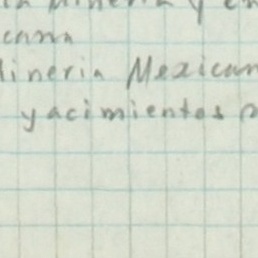 Mineria y en
cana
Mineria Mexican
yacimientos